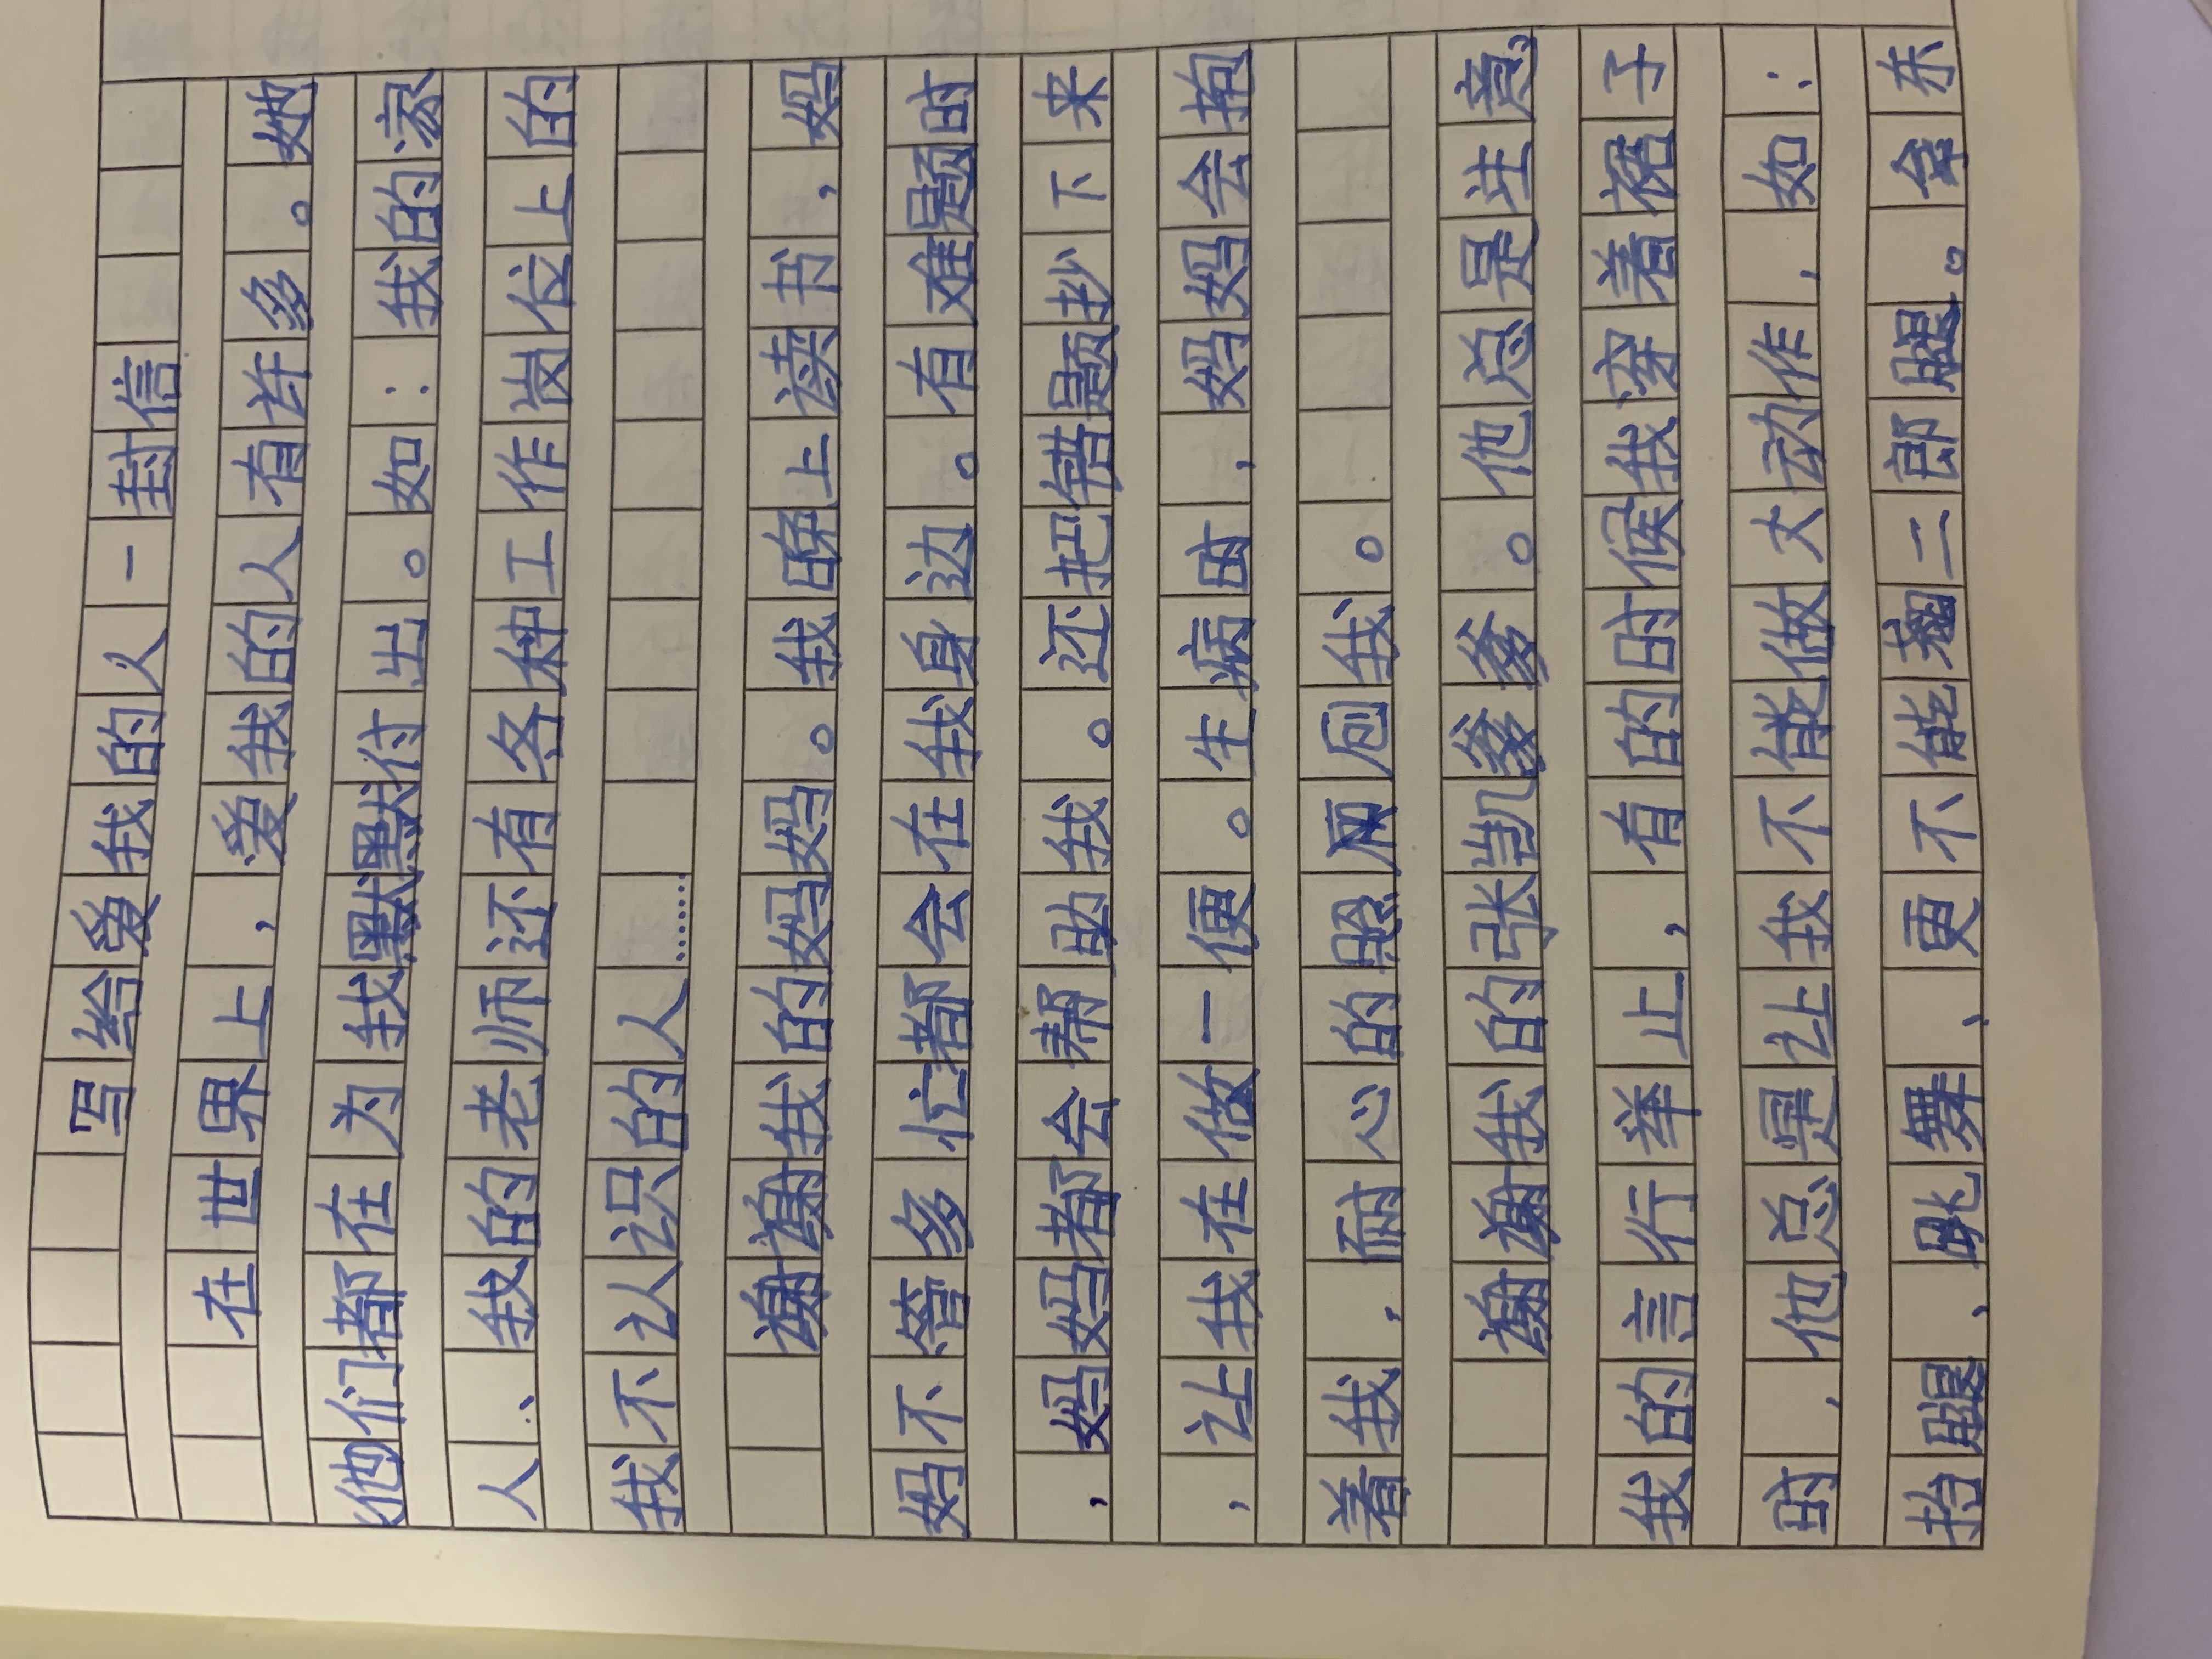 写给爱我的人一封信
在世界上，爱我的人有许多。她
他们都在为我默默付出。如：我的家
人、我的老师还有各种工作岗位上的
我不认识的人……
谢谢我的妈妈。我晚上读书，妈
妈不管多忙都会在我身边。有难题时
，妈妈都会帮助我。还把错题抄下来
，让我在做一便。生病时，妈妈会抱
着我，耐心的照回我。
谢谢我的张凯爹爹。他总是注意
我的言行举止，有的时候我穿着裙子
时，他总是让我不能做大动作，如：
抬腿、跳舞、更不能翘二郎腿。拿东